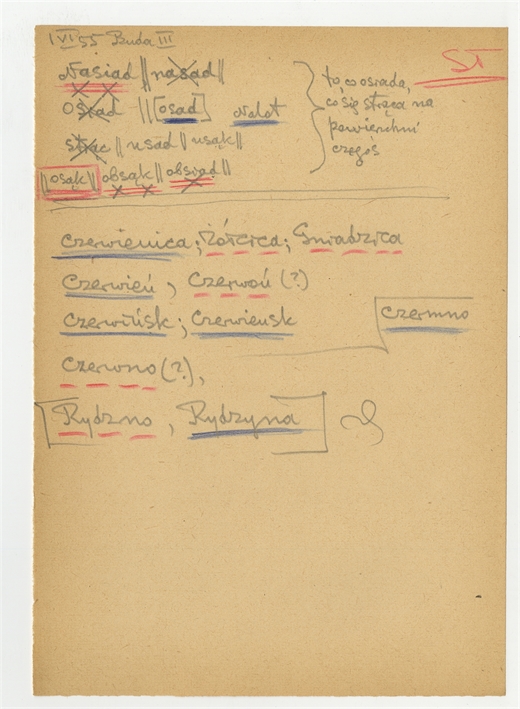 I VI 55 Buda III
ST
Nasiad || nasad ||
osiad || [osad] Nalot
strąc || usad || usąk ||
|| osąk || obsąk || obsiad ||
to, co osiada,
co się strąca na
powierzchni
czegoś
Czerwienica; Żółcica; Gniadzica
Czerwień, Czerwoń (?)
Czerwińsk; Czerwieńsk
Czermno
Czerwno (?),
Rydzno, Rydzyna